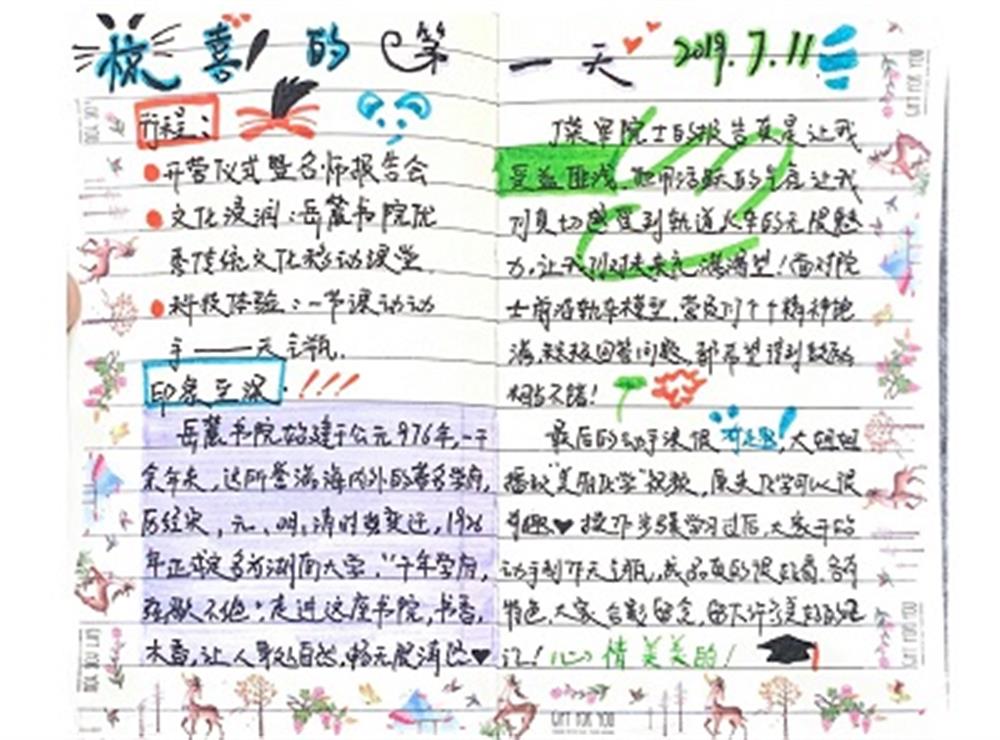 惊喜的第一天 2019.7.11
行程：
开营仪式暨名师报告会
文化浸润：岳麓书院优
秀传统文化移动课堂
科技体验：一节课动动
手——天气瓶.
印象至深：!!!
岳麓书院始建于公元976年,一千
余年来，这所誉满海内外的著名学府,
历经宋，元、明、清时势变迁，1926
年正式定名为湖南大学. "千年学府,
弦歌不绝"走进这座书院,书香,
木香,让人身处自然,畅无股清
丁荣军院士的报告真是让我
受益匪浅.他用活跃的气氛让我
们真切感受到轨道火车的无限魅
力,让我们对未来充满 ！面对院
士前沿轨车模型,营员们个个精神饱
满,积极回答问题,都希望得到
相当不错!
最后的动手课很有趣!大姐姐
播放"美丽化学"视频，原来化学可以很
有趣♥ 按下步骤学习过后,大家开始
动手制作天气瓶,成品真的很好看.各有
特色.大家合影留念,留下许多美好的
记! 心情美美的!
GIFT FOR YOU
GIFT FOR YOU
GIFT FOR YOU